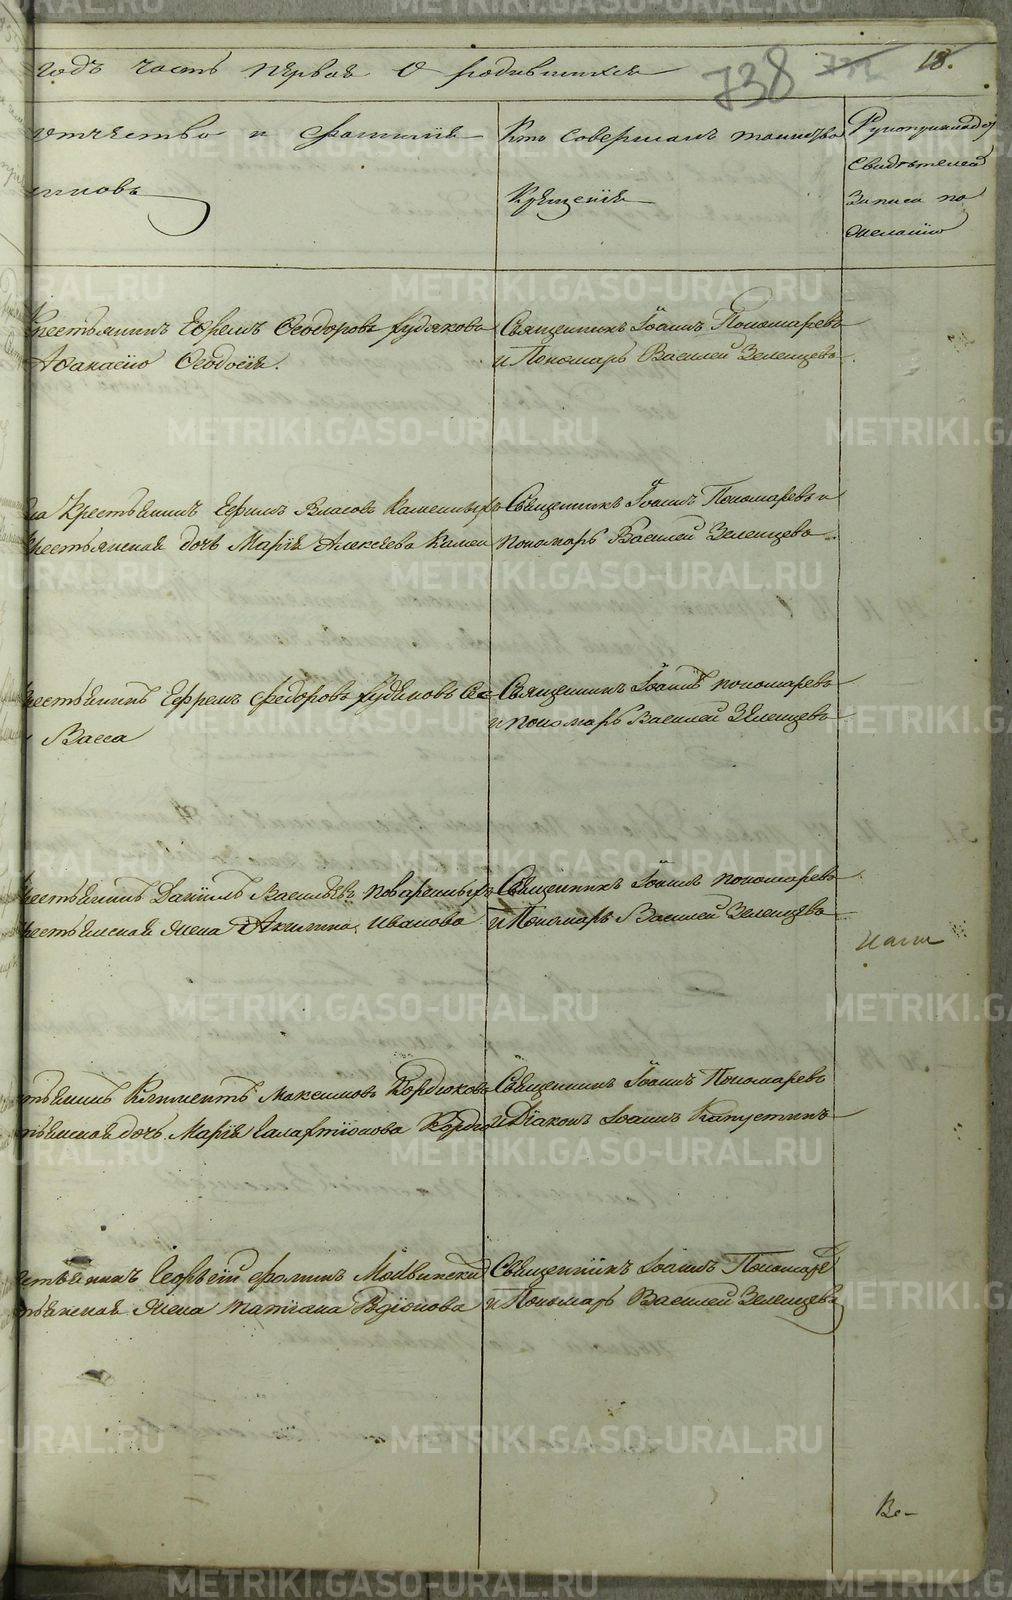 годъ часть первая О родившихся 738 18.
отчество и фамилія
Кто совершалъ таинство
Крещенія
Свидѣтелей
Записи по
желанію
Крестьянинъ Ефремъ Ѳеодоровъ Худяковъ
Аѳанасію Ѳеодосія.
Священникъ Іоаннъ Пономаревъ
и Пономарь Василей Зеленцевъ.
Крестьянинъ Ефимъ Власовъ Каменныхъ
Крестьянская дочь Марія Алексѣева Камен
Священникъ Іоаннъ Пономаревъ и
пономарь Василей Зеленцевъ.
Крестьянинъ Ефремъ Федоровъ Худяковъ
Васса
Священникъ Іоаннъ пономаревъ
и пономарь Василей Зѣленцевъ
Крестьянинъ Даніилъ Васильевъ Поваренныхъ
крестьянская жена Акилина Иванова
Священникъ Іоаннъ пономаревъ
и Пономарь Василей Зеленцевъ
стьянинъ Климентъ Максимовъ Кордюковъ
стьянская дочь Марія Галактіонова Кордю
Священникъ Іоаннъ Пономаревъ
и Діаконъ Іоаннъ Капустинъ
естьянинъ Георгій Фоминъ
стьянская жена Татіана Родіонова
Священникъ Іоаннъ Пономаре
и Пономарь Василей Зеленцевъ
Ве-
METRIKI.GASO-URAL.RU